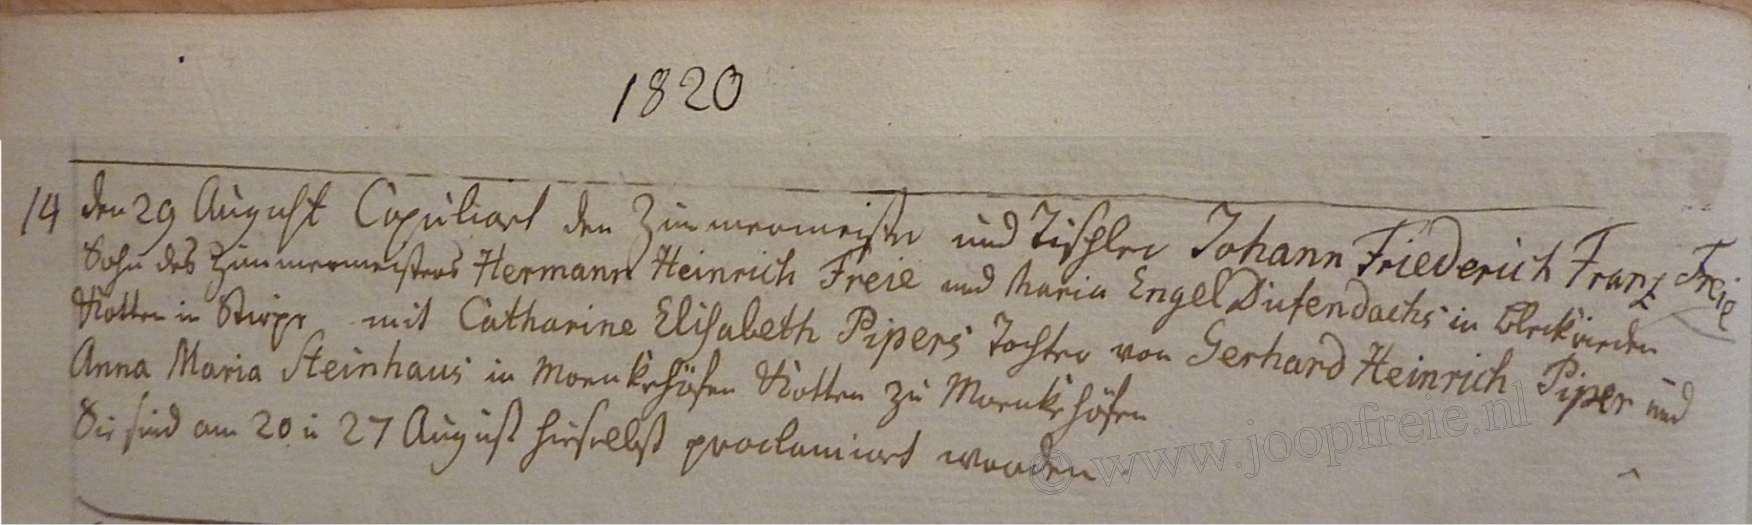 1820
14 den 29 August Copuliert den Zimmermeister und Tischler Johann Friederich Franz Freie
Sohn des Zimmermeisters Hermann Heinrich Freie und Maria Engel Diefendachs in
Kotten in Stirpe mit Catharine Elisabeth Pipers Tochter von Gerhard Heinrich Piper und
Anna Maria Steinhaus in Moenkehöfen Kotten zu Moenkehöfen
Die sind am 20 u 27 August hieselbst proclamiert worden
© www.joopfreie.nl